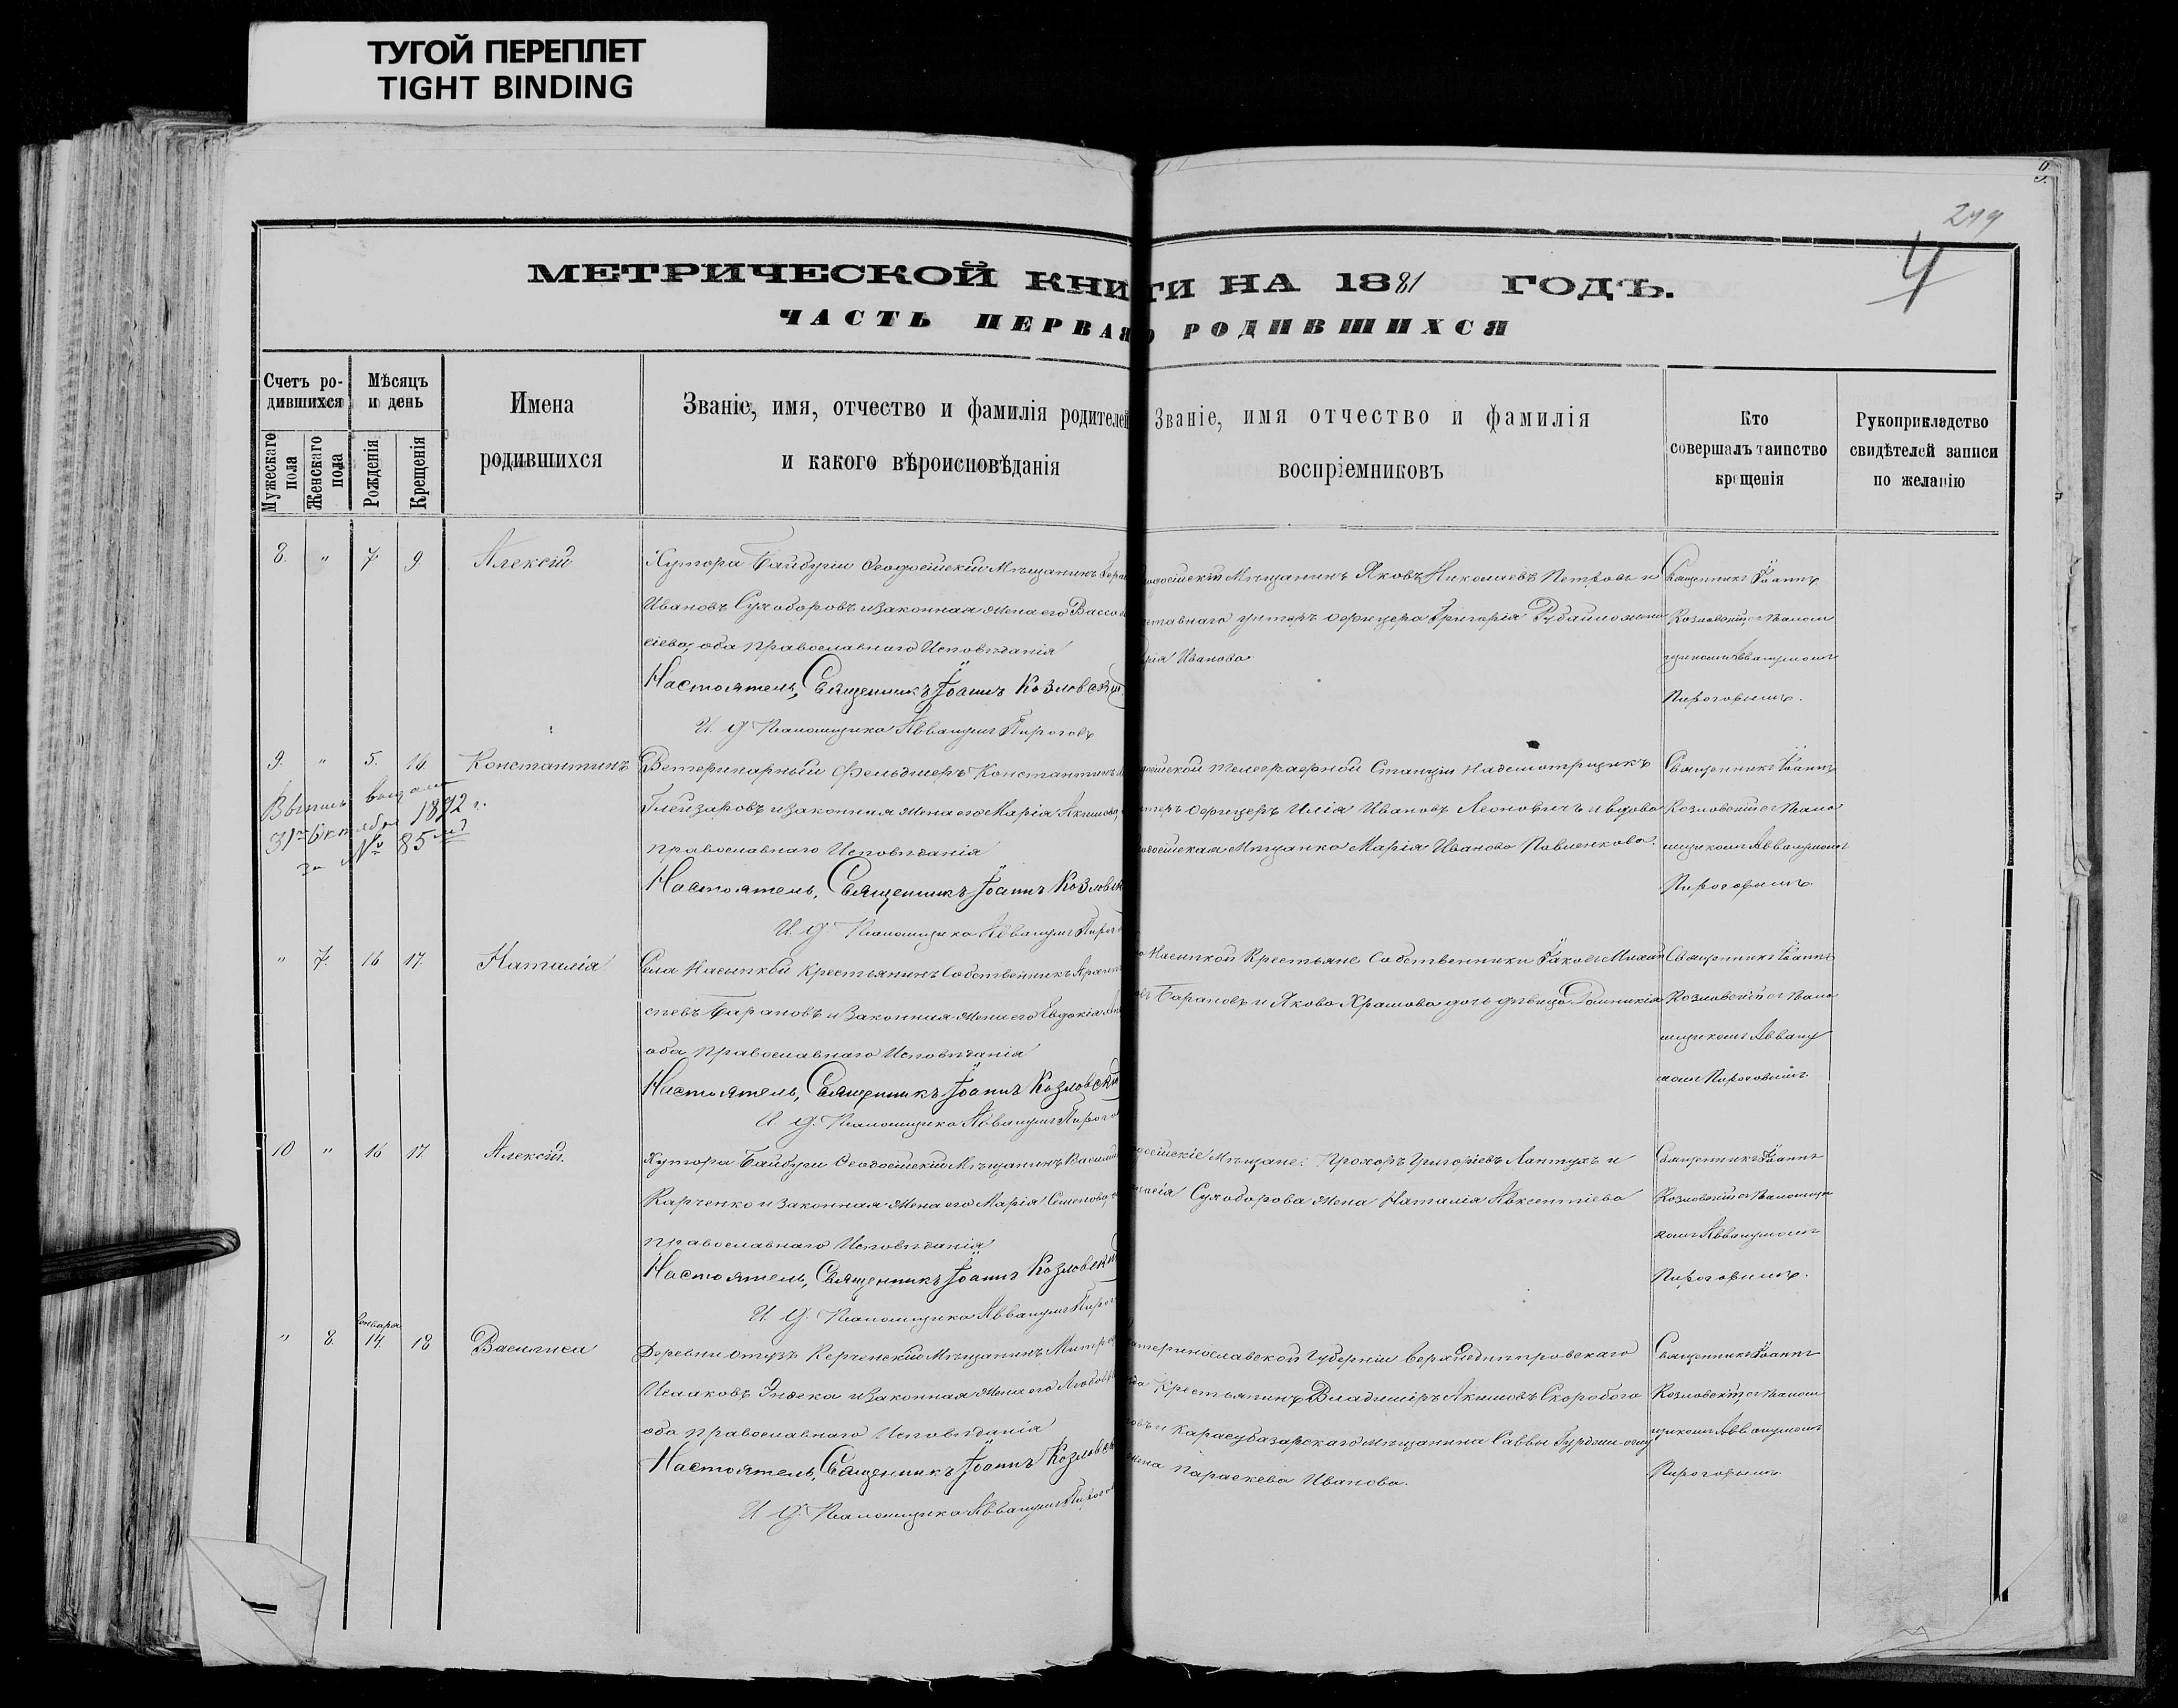 ТУГОЙ ПЕРЕПЛЕТ
TIGHT BINDING
299
4
МЕТРИЧЕСКОЙ КНИГИ НА 1881 ГОДЪ.
ЧАСТЬ ПЕРВАЯ О РОДИВШИХСЯ
Счетъ родившихся
Мужескаго пола
Женскаго пола
Мѣсяцъ и день
Рожденія
Крещенія
Имена родившихся
Званіе, имя, отчество и фамилія родителей
и какого вѣроисповѣданія
Званіе, имя отчество и фамилія
воспріемниковъ
Кто
совершалъ таинство
крещенія
Рукоприкладство
свидѣтелей записи
по желанію
8. " 7. 9 Алексій
Хутора Байбуги Ѳеодосійскій Мѣщанинъ
Ивановъ Сухоборовъ и законная жена его
сіева, оба православнаго Исповѣданія
Настоятель, Священникъ Іоаннъ Козловскій
И. д. Псаломщика Аввакумъ Пироговъ
Мѣщанинъ Яковъ Николаевъ Петровъ и
унтеръ офицера Григорія жена
Иванова
Священникъ Іоаннъ
Козловскій съ Псалом
щикомъ Аввакумомъ
Пироговымъ.
9. " 5. 14 Константинъ
Выпись выдана
31го Октября 1892 г.
за № 85мъ
Ветеринарный Фельдшеръ Константинъ
Глейзаровъ и законная жена его Марія Акимова,
православнаго Исповѣданія
Настоятель, Священникъ Іоаннъ Козловск
И. д. Псаломщика Аввакумъ Пирог
Телеграфной Станціи надсмотрщикъ
офицеръ Илія Ивановъ Леоновичъ и вдова
Мѣщанка Марія Иванова Павленкова.
Священникъ Іоаннъ
Козловскій съ Псало
мщикомъ Аввакумомъ
Пироговымъ.
" 7. 16 17. Наталія
Села Насыпкой Крестьянинъ Собственникъ
Барановъ и Законная жена его Евдокія
оба православнаго Исповѣданія
Настоятель, Священникъ Іоаннъ Козловскій
И. д. Псаломщика Аввакумъ Пирого
Насыпкой Крестьяне Собственники Іаковъ
Барановъ и Якова Храмова дочь дѣвица Домникія
Священникъ Іоаннъ
Козловскій съ Псало
мщикомъ Авваку
момъ Пироговымъ.
10 " 16 17. Алексій.
Хутора Байбуги Ѳеодосійскій Мѣщанинъ
Карченко и законная жена его Марія Семенова,
православнаго Исповѣданія
Настоятель, Священникъ Іоаннъ Козловскій
И. д. Псаломщика Аввакумъ Пирог
Мѣщане: Прохоръ Григорьевъ Лаптухъ и
Сухоборова жена Наталія Авксентіева
Священникъ Іоаннъ
Козловскій съ Псаломщи
комъ Аввакумомъ
Пироговымъ.
" 8. Января 14. 18 Василиса
Деревни Отузъ Керченскій Мѣщанинъ
Исааковъ и законная жена его Любовь
оба православнаго Исповѣданія
Настоятель, Священникъ Іоаннъ Козловск
И. д. Псаломщика Аввакумъ Пирогов
Губерніи Верхнеднѣпровскаго
Крестьянинъ Владиміръ Акимовъ Скоробога
и Карасубазарскаго мѣщанина Саввы
жена Параскева Иванова.
Священникъ Іоаннъ
Козловскій, съ Псалом
щикомъ Аввакумомъ
Пироговымъ.